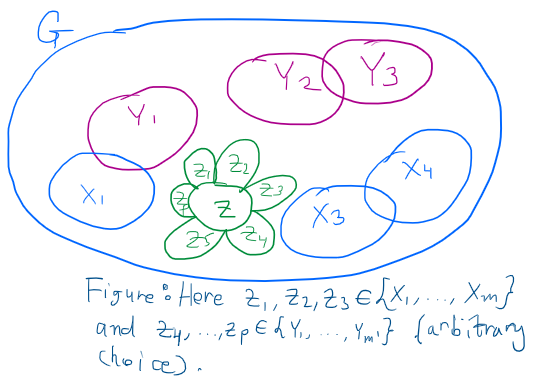 G
Y₂ Y₃
Y₁
Z₁ Z₂
X₁ Z₃ X₄
Z X₃
Z₅ Z₄
Figure: Here Z₁, Z₂, Z₃ ∈ {X₁, ..., Xm}
and Z₄, ..., Zp ∈ {Y₁, ..., Ym'} (arbitrary
choice).